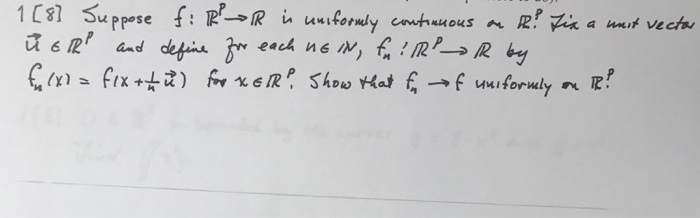 1[8] Suppose f: ℝᵖ→ℝ is uniformly continuous on ℝᵖ. Fix a unit vector
u⃗ ∈ ℝᵖ and define for each n ∈ ℕ, fₙ: ℝᵖ → ℝ by
fₙ(x) = f(x + 1/n u⃗) for x ∈ ℝᵖ. Show that fₙ → f uniformly on ℝᵖ.